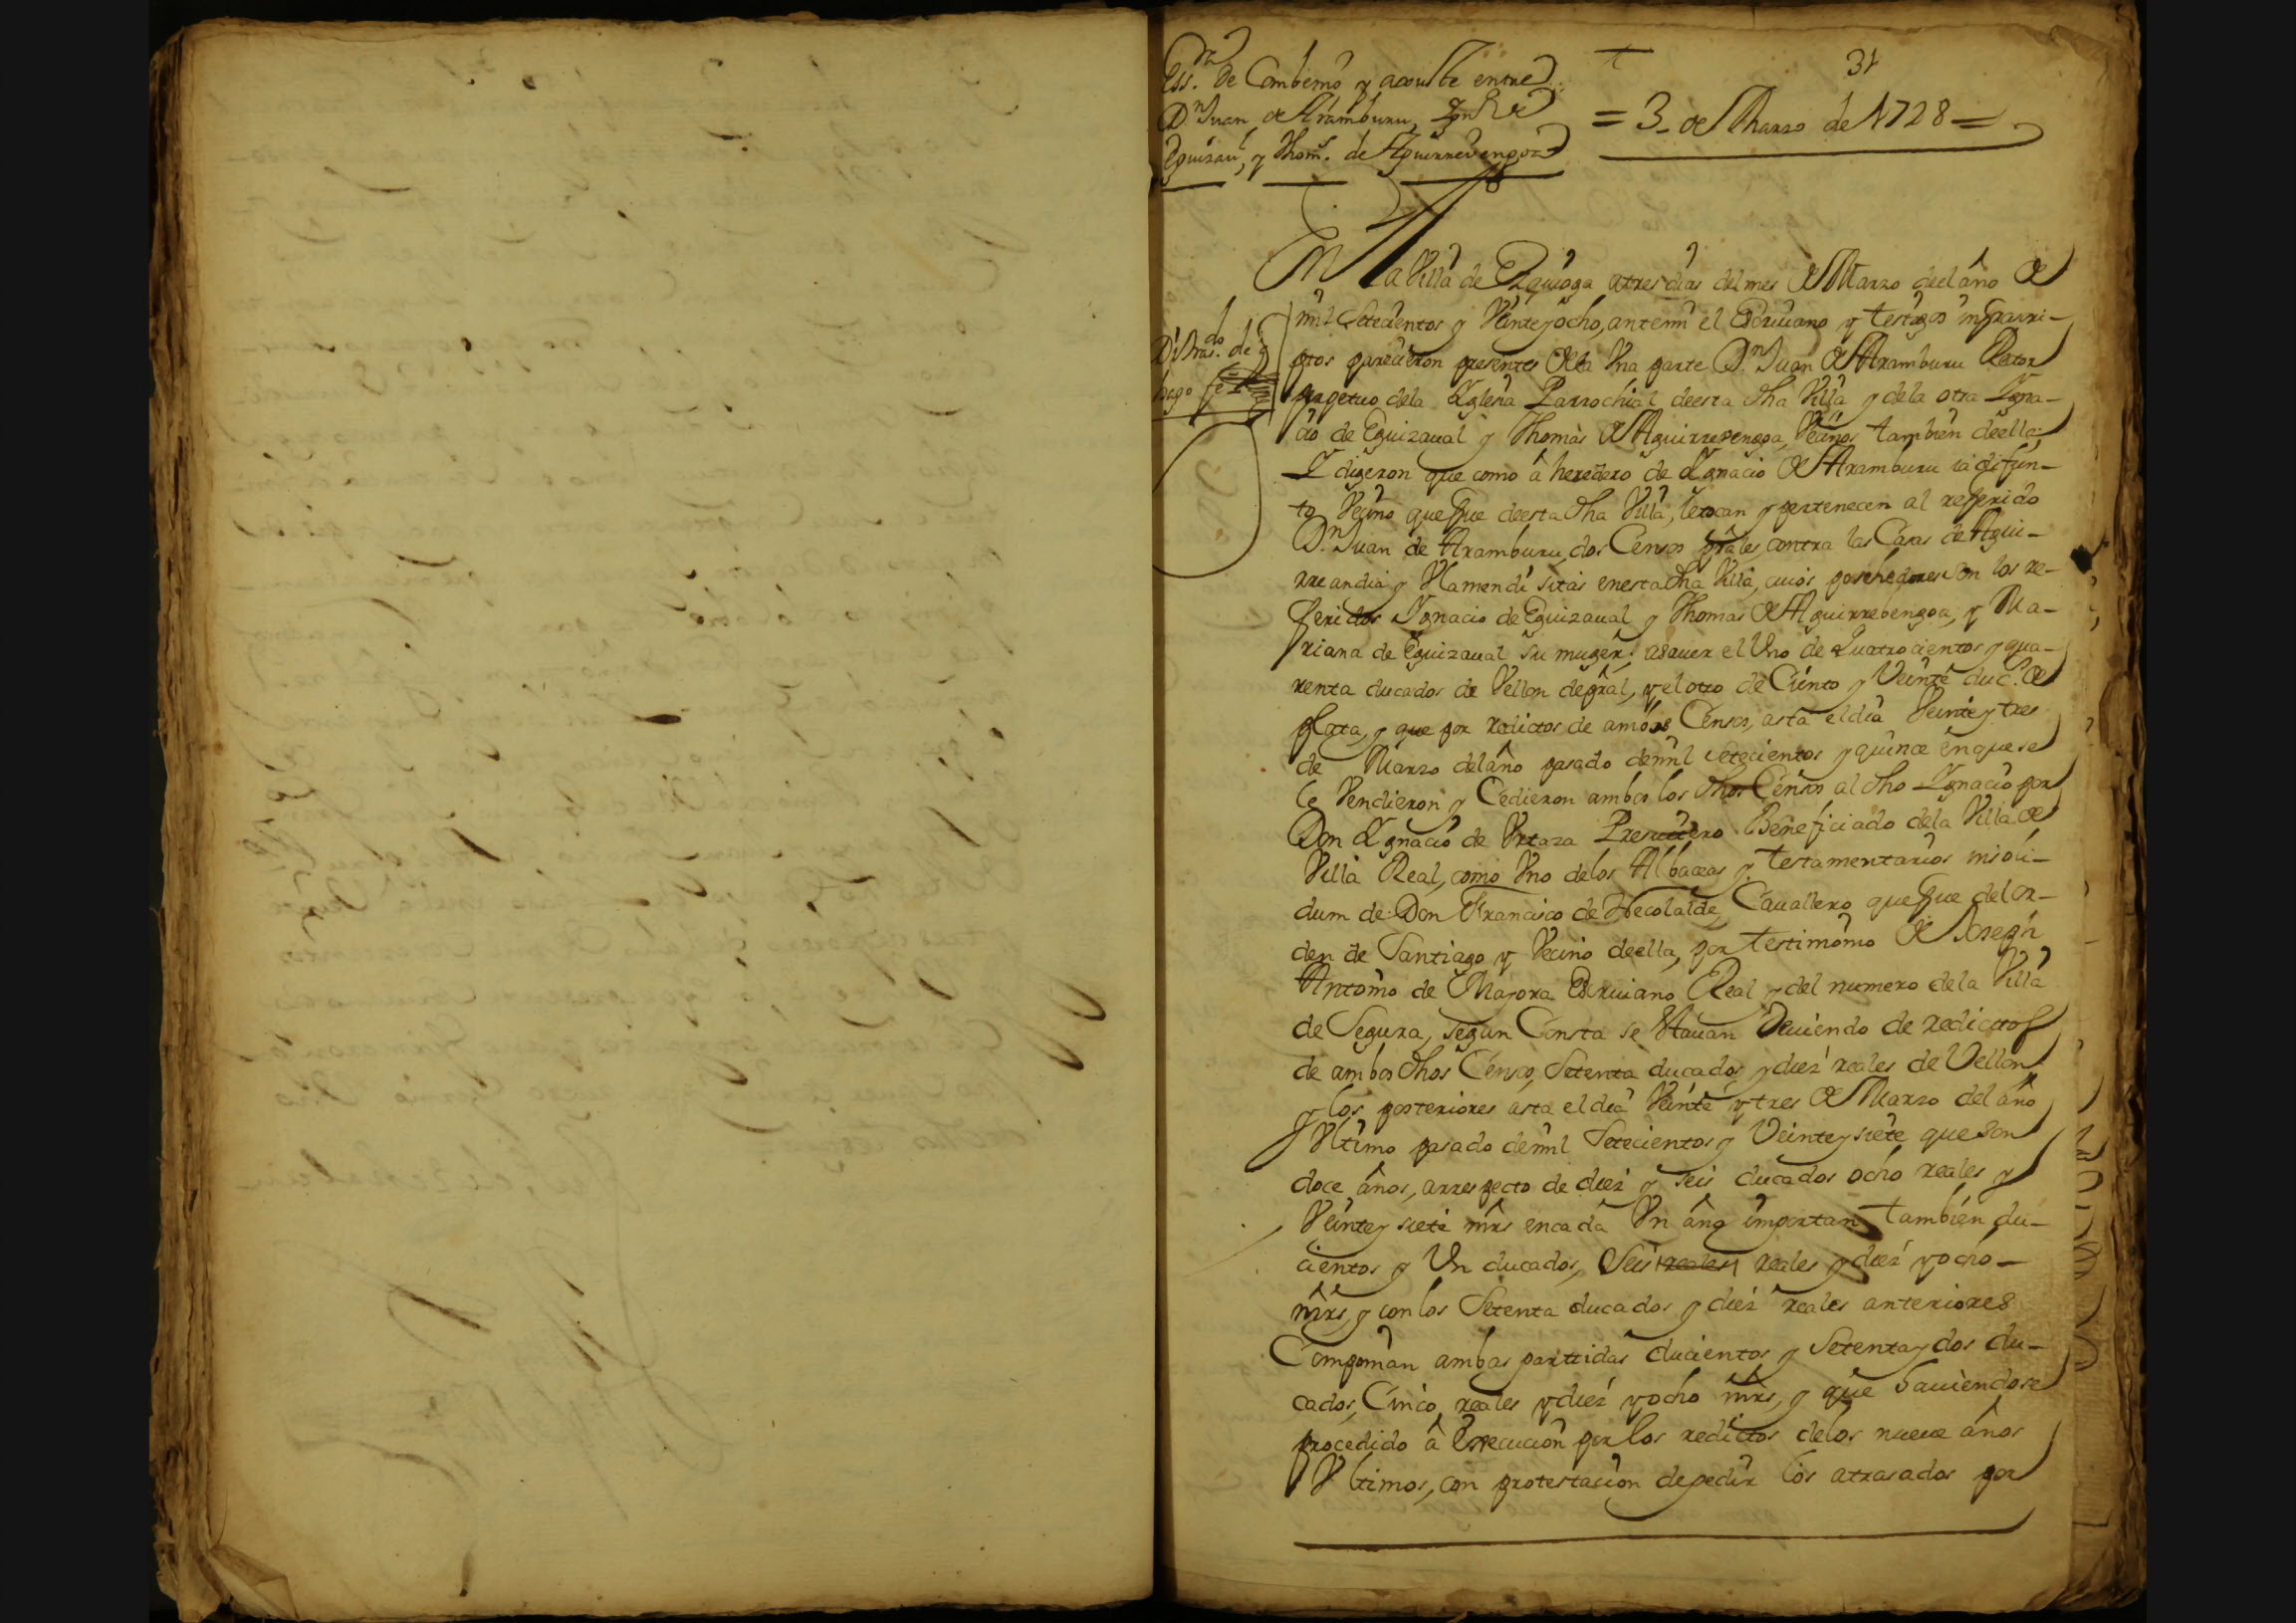 Ess.ra de Combenio y aGouste entre
D.n Juan de Aramburu, Ign.o de
Eguizaul, y Thom.s de Aguirrevengoa
31
= 3 de Marzo de 1728 =
En la Villa de Ezquioga atres dias del mes de Marzo deel año de
mil Setecientos y Veinteyocho, antemi el Escriuano y testigos infraescri-
ptos parecieron presentes de la Vna parte D.n Juan de Aramburu Rector
perpetuo dela Yglesia Parrochial deesta dha Villa y dela otra Ygna-
cio de Eguizaual y Thomàs de Aguirrevengoa, Vecinos tambien deella:
Y digeron que como â heredero de Ygnacio de Aramburu ia difun-
to Vecino que fue deesta dha Villa, letocan y pertenecen al referido
D.n Juan de Aramburu, dos Censos prâles, contra las Casas de Agui-
rreandia y Vlamendi sitas enesta dha Villa, cuios posehedores son los re-
feridos Ygnacio de Eguizaual y Thomas de Aguirrebengoa, y Ma-
riana de Eguizaual su muger: asauer el Vno de Quatrocientos y qua-
renta ducados de Vellon deprâl, y el otro de Ciento y Veinte duc.s de
plata, y que por redictos de ambos Censos, asta eldia Veinte y tres
de Marzo delaño pasado demil setecientos y quince en que se
le Vendieron y Cedieron ambos los dhos Censos al dho Ygnacio por
Don Ygnacio de Vrtaza Presuitero Beneficiado dela Villa de
Villa Real, como Vno delos Albaceas y testamentarios insoli-
dum de Don Francisco de Necolalde, Cauallero que fue delor-
den de Santiago y Vecino deella, por testimonio de Joseph
Antonio de Mayora Escriuano Real y del numero dela Villa
de Segura, segun Consta se Estauan Deuiendo de redictos
de ambos dhos Censos, Setenta ducados y diez reales de Vellon
y los posteriores asta eldia Veinte y tres de Marzo del año
Vltimo pasado demil Setecientos y Veinteysiete que son
doce años, arrespecto de diez y seis ducados ocho reales y
Veinteysiete mrs encada Vn año importan tambien du-
cientos y Vn ducados, Seis reales reales y diez yocho
mrs, y con los Setenta ducados y diez reales anteriores
Componian ambas partidas ducientos y Setentaydos du-
cados, Cinco reales y diez yocho mrs, y que hauiendose
procedido â Execucion por los redictos delos nueue años
Vltimos, con protestacion depedir los atrasados por
hago fe